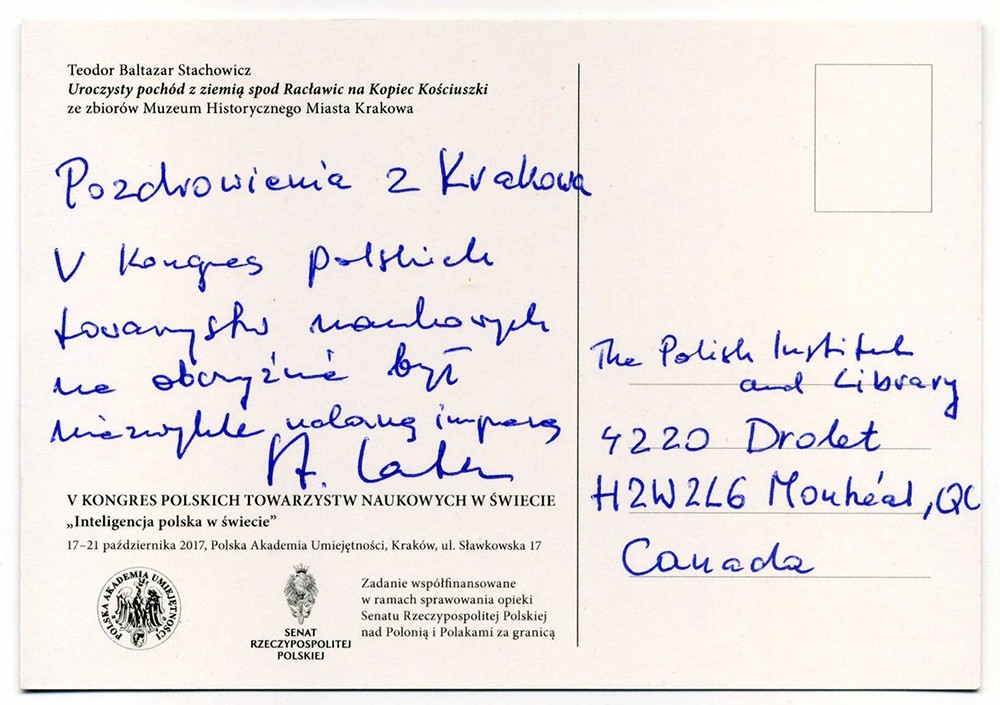 Teodor Baltazar Stachowicz
Uroczysty pochód z ziemią spod Racławic na Kopiec Kościuszki
ze zbiorów Muzeum Historycznego Miasta Krakowa
Pozdrowienia z Krakowa
V Kongres polskich
towarzystw naukowych
na obczyźnie był
niezwykle udaną imprezą
A.
V KONGRES POLSKICH TOWARZYSTW NAUKOWYCH W ŚWIECIE
„Inteligencja polska w świecie”
17–21 października 2017, Polska Akademia Umiejętności, Kraków, ul. Sławkowska 17
POLSKA AKADEMIA UMIEJĘTNOŚCI
SENAT
RZECZYPOSPOLITEJ
POLSKIEJ
Zadanie współfinansowane
w ramach sprawowania opieki
Senatu Rzeczypospolitej Polskiej
nad Polonią i Polakami za granicą
The Polish Institute
and Library
4220 Drolet
H2W2L6 Montréal, QC
Canada